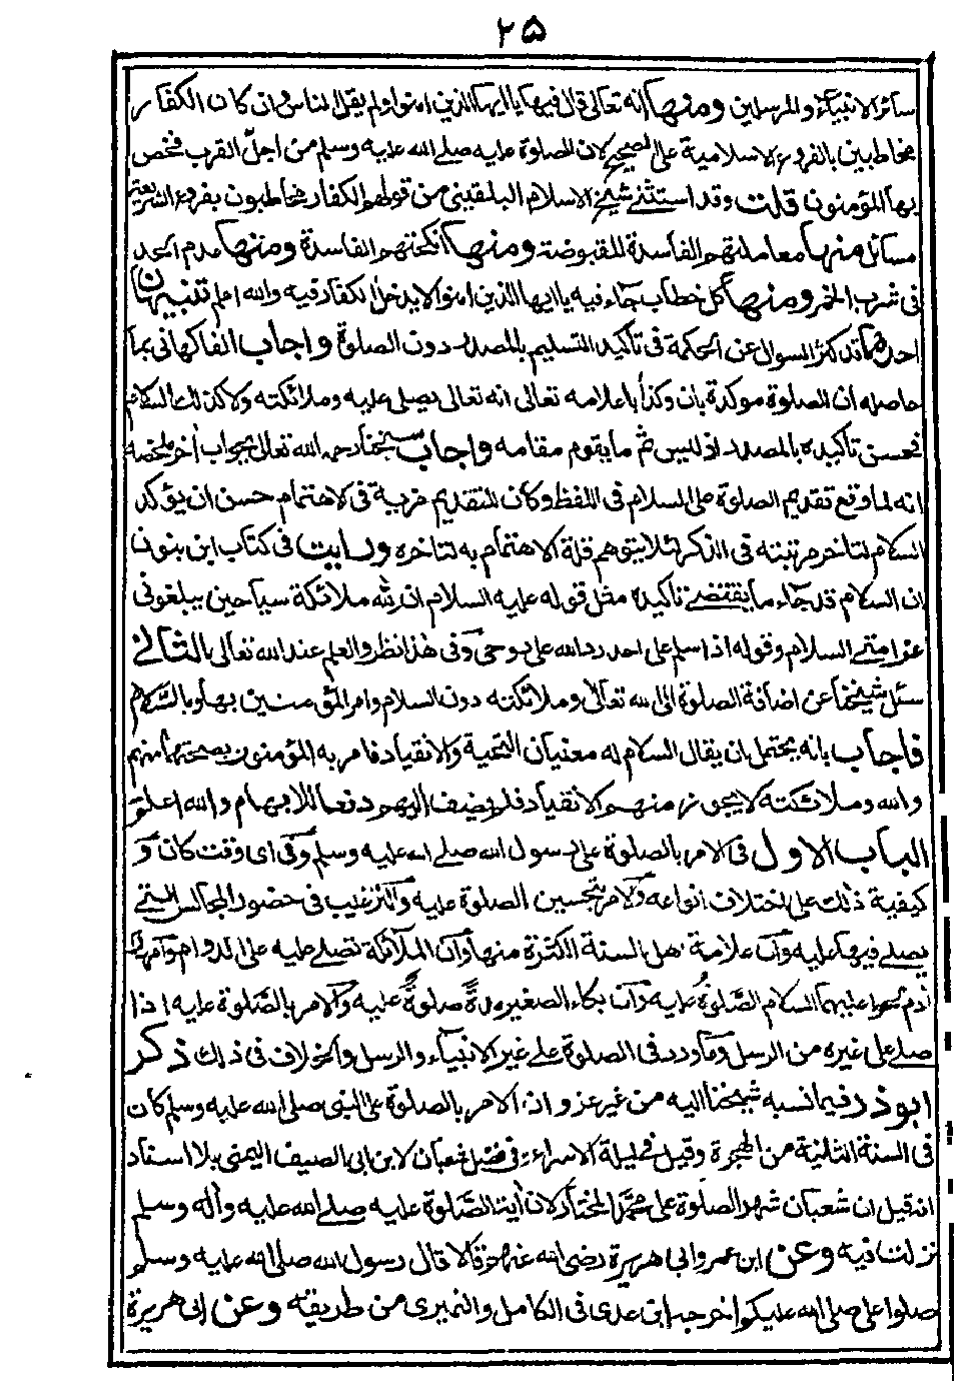 ٢٥
سائر الانبياء والمرسلين ومنها انه تعالى قال فيها يا ايها الذين امنوا ولم يقل الناس وان كان الكفار
مخاطبين بالفروع الاسلامية على الصحيح لان الصلوة عليه صلى الله عليه وسلم من اجل القرب فخص
بها المؤمنون قلت وقد استثنى شيخ الاسلام البلقيني من قولهم الكفار مخاطبون بفروع الشريعة
مسائل منها معاملتهم الفاسدة المقبوضة ومنها انكحتهم الفاسدة ومنها عدم الحد
فى شرب الخمر ومنها كل خطاب جاء فيه يا ايها الذين امنوا لا يدخل الكفار فيه والله اعلم تنبيهان
احدهما قد كثر السوال عن الحكمة فى تاكيد التسليم بالمصدر دون الصلوة واجاب الفاكهانى بما
حاصله ان الصلوة موكدة بان وكذا باعلامه تعالى انه تعالى يصلى عليه وملائكته ولا كذلك السلام
فحسن تاكيده بالمصدر اذ ليس ثم ما يقوم مقامه واجاب شيخنا رحمه الله تعالى بجواب اخر ملخصه
انه لما وقع تقديم الصلوة على السلام فى اللفظ وكان للتقديم مزية فى الاهتمام حسن ان يؤكد
السلام لتاخر مرتبته فى الذكر لئلا يتوهم قلة الاهتمام به لتاخره ورايت فى كتاب ابن بنون
ان السلام قد جاء ما يقتضى تاكيده مثل قوله عليه السلام ان لله ملائكة سياحين يبلغونى
عن امتى السلام وقوله اذا سلم على احد رد الله على روحى وفى هذا نظر والعلم عند الله تعالى الثانى
سئل شيخنا عن اضافة الصلوة الى الله تعالى وملائكته دون السلام وامر المؤمنين بها وبالسلام
فاجاب بانه يحتمل ان يقال السلام له معنيان التحية والانقياد فامر به المؤمنون لصحتهما منهم
والله وملائكته لا يجوز منهم الانقياد فلم يضف اليهم دفعا للابهام والله اعلم
الباب الاول فى الامر بالصلوة على رسول الله صلى الله عليه وسلم وفى اى وقت كان و
كيفية ذلك على اختلاف انواعه والامر بتحسين الصلوة عليه والترغيب فى حضور المجالس التى
يصلى فيها عليه وان علامة اهل السنة الكثرة منها وان الملائكة تصلى عليه على الدوام وامهار
ادم لحواء عليهما السلام الصلوة عليه وان بكاء الصغير مدة صلوة عليه والامر بالصلوة عليه اذا
صلى على غيره من الرسل وما ورد فى الصلوة على غير الانبياء والرسل والخلاف فى ذلك ذكر
ابو ذر فيما نسبه شيخنا اليه من غير عزو ان الامر بالصلوة على النبى صلى الله عليه وسلم كان
فى السنة الثانية من الهجرة وقيل فى ليلة الاسراء وفى فضل شعبان لابن ابى الصيف اليمنى بلا اسناد
انه قيل ان شعبان شهر الصلوة على محمد المختار لان اية الصلوة عليه صلى الله عليه واله وسلم
نزلت فيه وعن ابن عمر وابى هريرة رضى الله عنهم قالا قال رسول الله صلى الله عليه وسلم
صلوا على صلى الله عليكم اخرجه ابن عدى فى الكامل والنميرى من طريقه وعن ابى هريرة